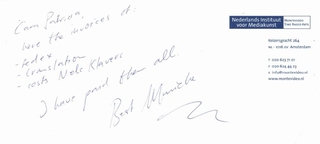 here the invoices of:
- fedex
- translation
- costs Nele Klavers
I have paid them all
Best Marieke
Nederlands Instituut
voor Mediakunst
Keizersgracht 264
NL - 1016 EV Amsterdam
T 020 623 71 01
F 020 624 44 23
E info@montevideo.nl
www.montevideo.nl